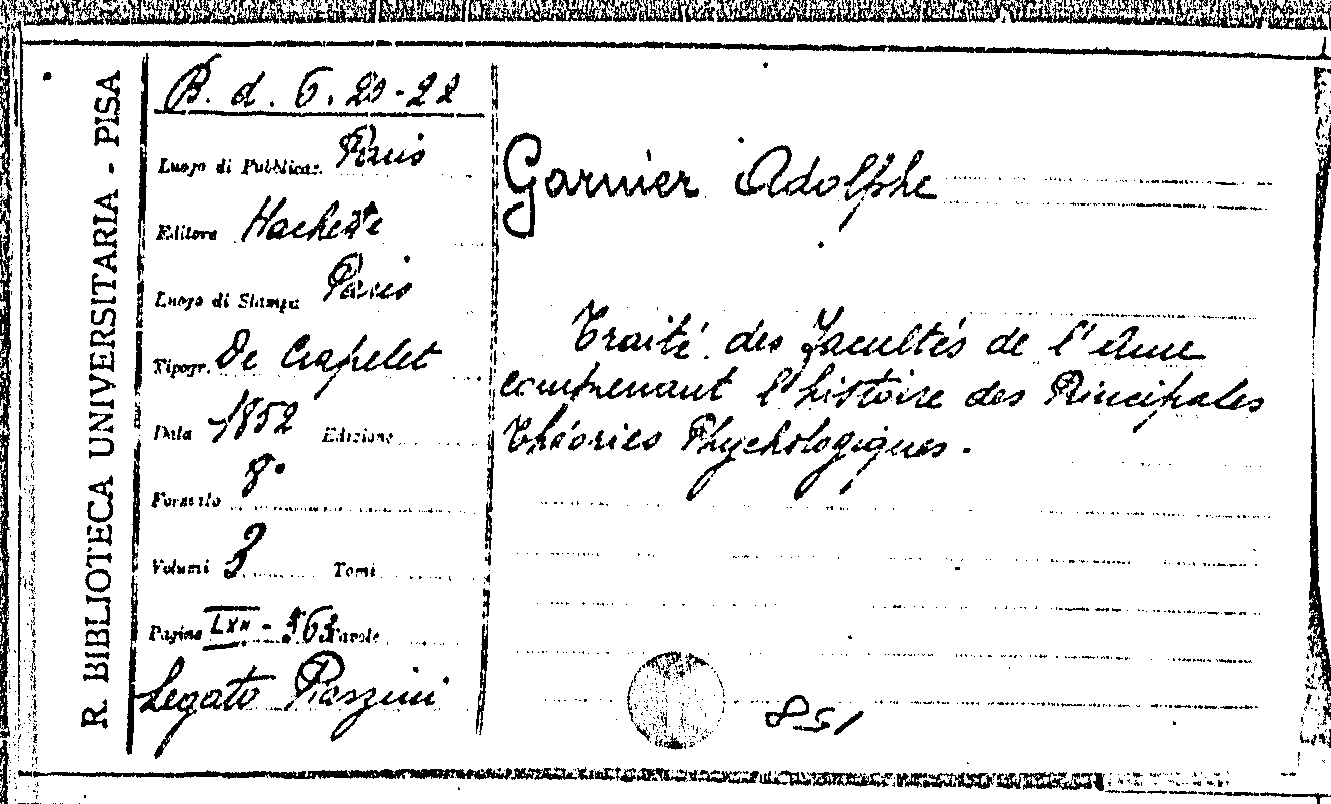 R. BIBLIOTECA UNIVERSITARIA - PISA
B. d. 6. 20-22
Luogo di Pubblicaz. Paris
Editore Hachette
Luogo di Stampa Paris
Tipogr. De Crapelet
Data 1852 Edizione
Formato 8°
Volumi 3 Tomi
Pagine LXII - 563 Tavole
Legato Piazzini
Garnier Adolphe
Traité des Facultés de l'Ame
comprenant l'histoire des Principales
Théories Phychologiques.
851